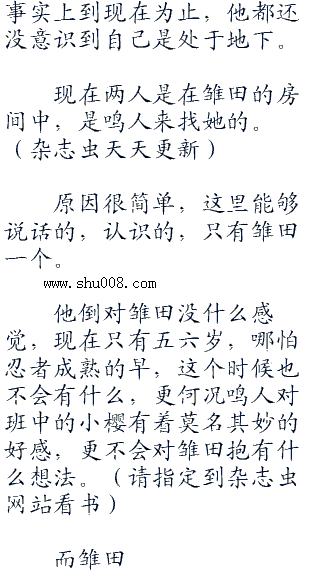 事实上到现在为止，他都还
没意识到自己是处于地下。
现在两人是在雏田的房
间中，是鸣人来找她的。
（杂志虫天天更新）
原因很简单，这里能够
说话的，认识的，只有雏田
一个。
www.shu008.com
他倒对雏田没什么感
觉，现在只有五六岁，哪怕
忍者成熟的早，这个时候也
不会有什么，更何况鸣人对
班中的小樱有着莫名其妙的
好感，更不会对雏田抱有什
么想法。（请指定到杂志虫
网站看书）
而雏田